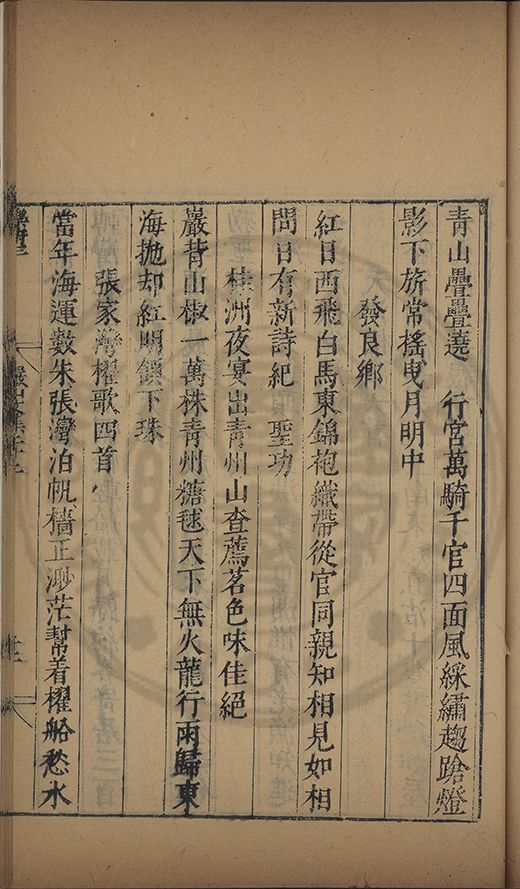 青山疊疊遶 行宮萬騎千官四面風綵繡趨蹌燈
影下旂常搖曳月明中
發良鄉
紅日西飛白馬東錦袍織帶從官同親知相見如相
問日有新詩紀 聖功
桂洲夜宴出青州山查薦茗色味佳絕
巖背山椒一萬株青州糖毬天下無火龍行雨歸東
海拋却紅明頷下珠
張家灣櫂歌四首
當年海運數朱張灣泊帆檣正渺茫幫着櫂船愁水